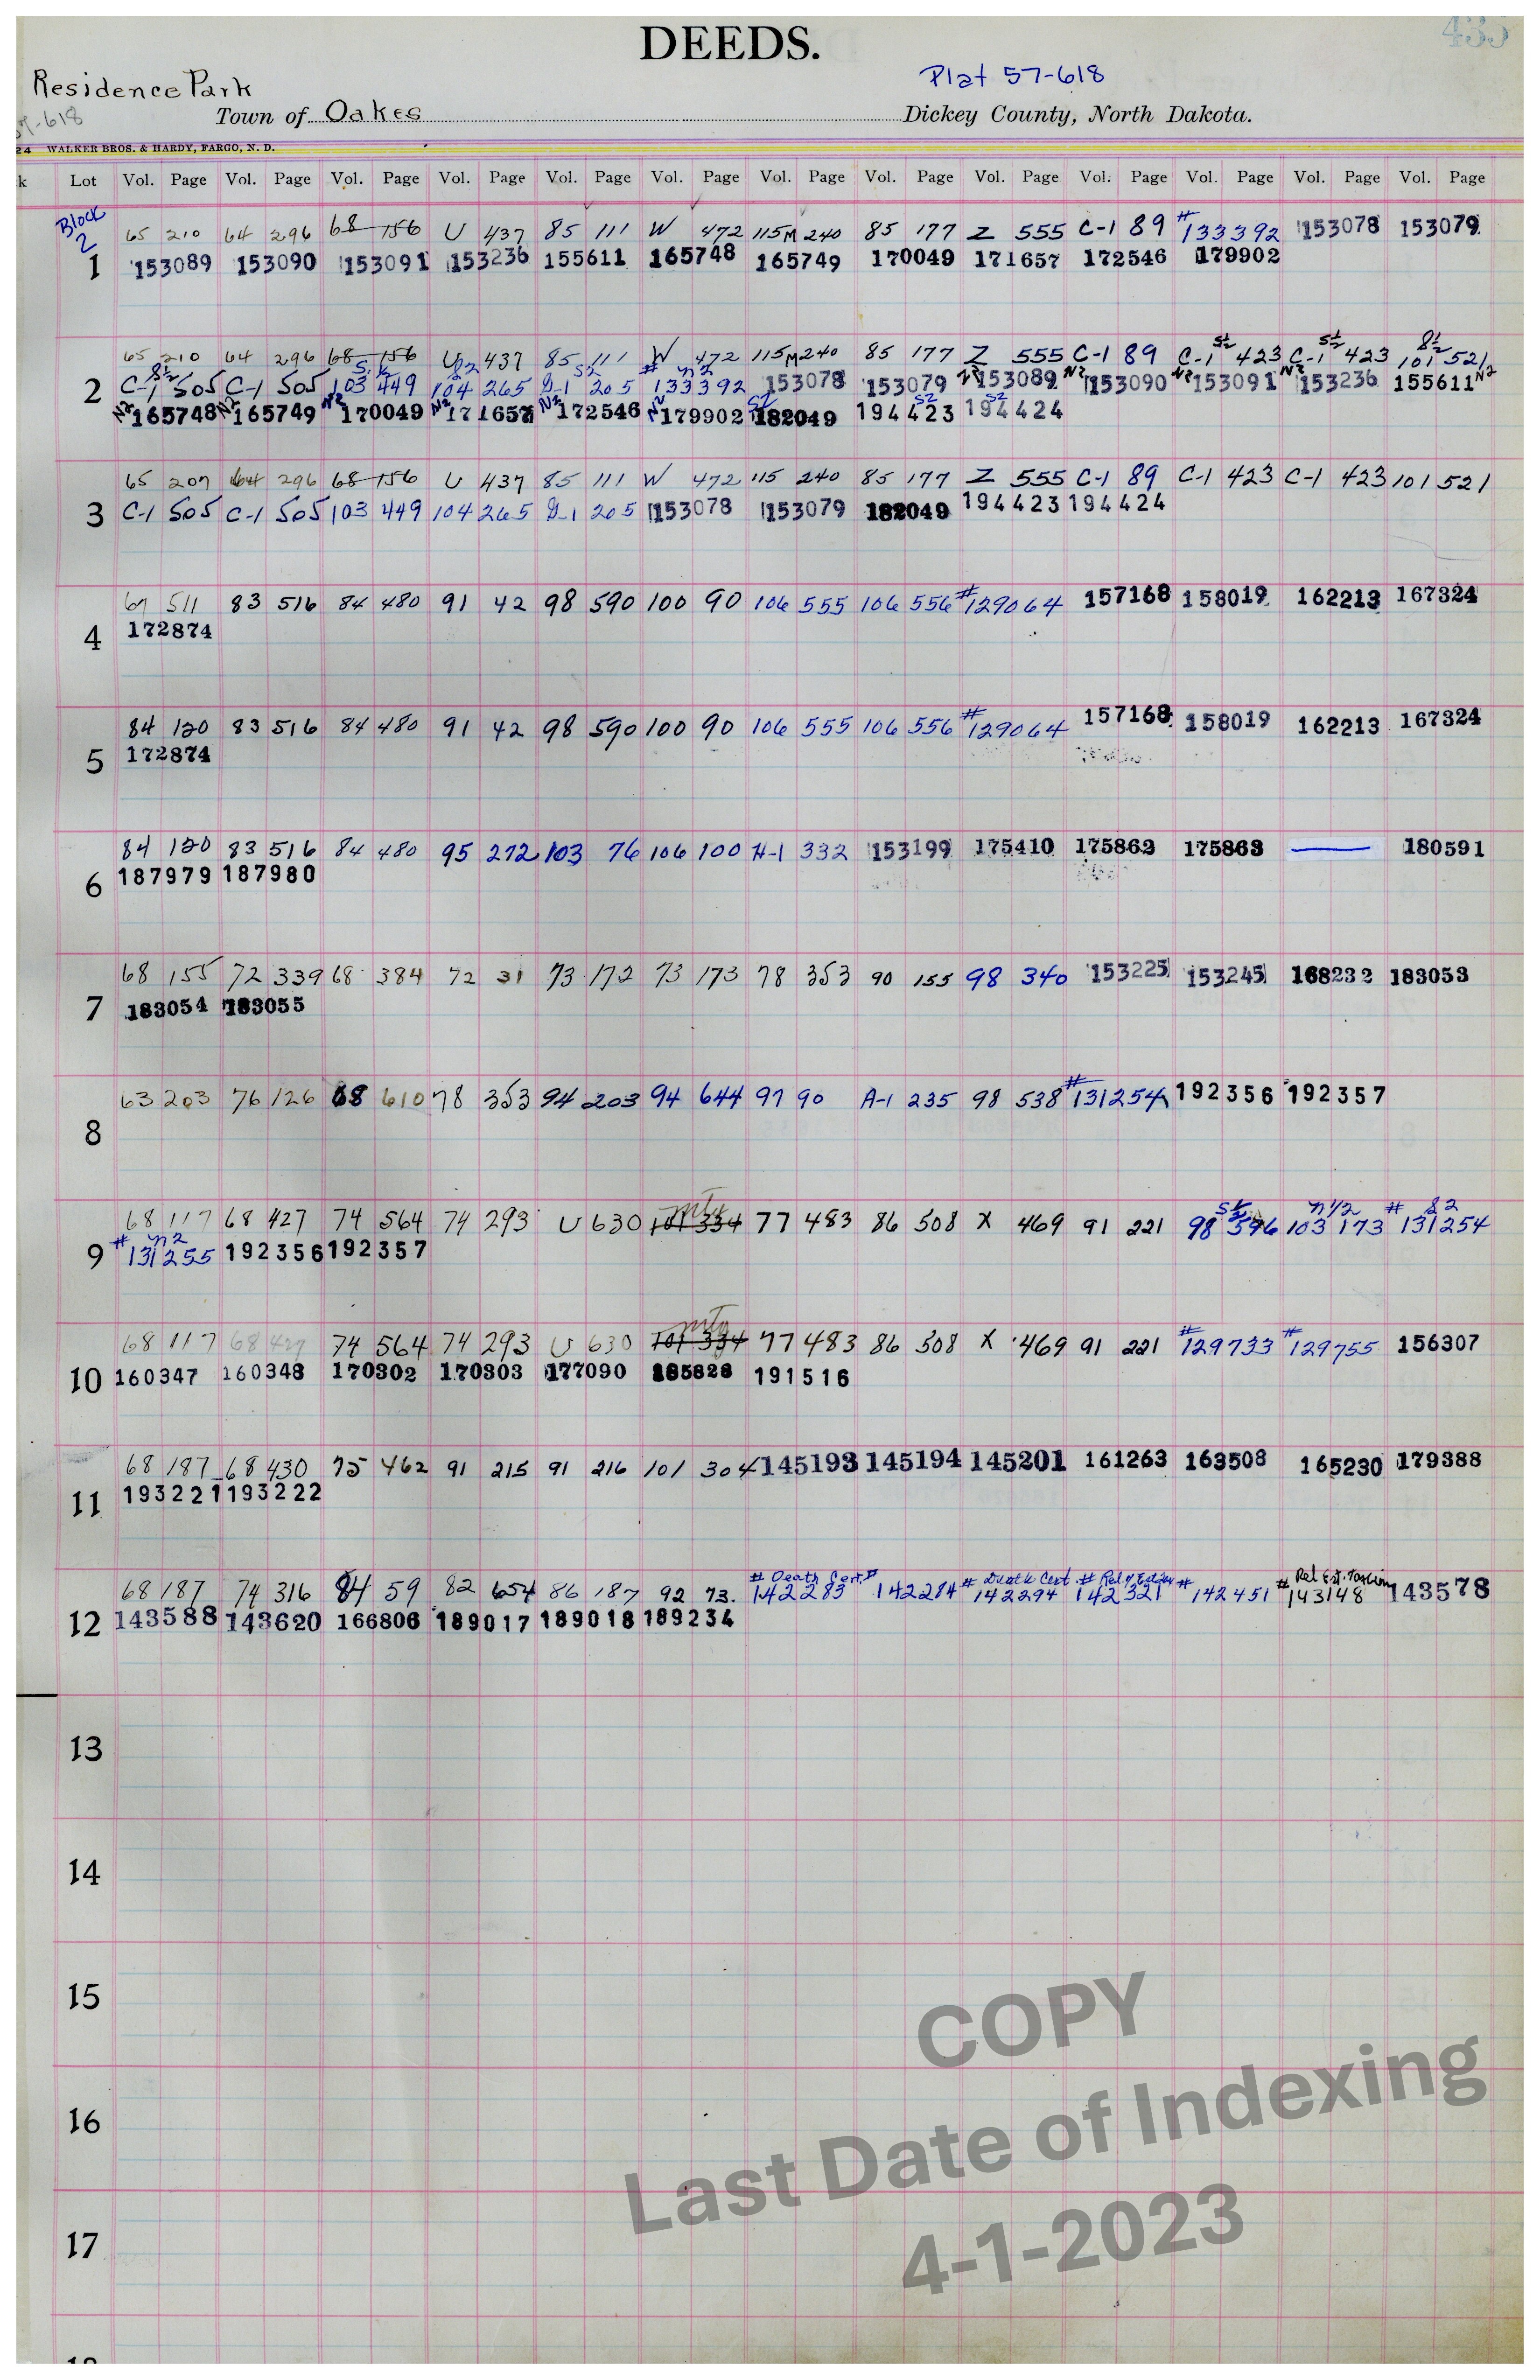 433
DEEDS.
Residence Park
Plat 57-618
57-618
Town of Oakes Dickey County, North Dakota.
24 WALKER BROS. & HARDY, FARGO, N. D.
k Lot Vol. Page Vol. Page Vol. Page Vol. Page Vol. Page Vol. Page Vol. Page Vol. Page Vol. Page Vol. Page Vol. Page Vol. Page Vol. Page
Block 2
65 210 64 296 68 156 U 437 85 111 W 472 115M 240 85 177 Z 555 C-1 89 #133392 153078 153079
1 153089 153090 153091 153236 155611 165748 165749 170049 171657 172546 179902
S½ S½ S½
65 210 64 296 68 156 U 437 85 111 W 472 115M 240 85 177 Z 555 C-1 89 C-1 423 C-1 423 101 521
S½ S½ S2 S2 # N2
2 C-1 505 C-1 505 103 449 104 265 D-1 205 133392 153078 153079 N2 153089 N2 153090 N2 153091 N2 153236 155611 N2
N2 165748 N2 165749 N2 170049 N2 171657 N2 172546 N2 179902 S2 182049 194423 S2 194424 S2
65 207 64 296 68 156 U 437 85 111 W 472 115 240 85 177 Z 555 C-1 89 C-1 423 C-1 423 101 521
3 C-1 505 C-1 505 103 449 104 265 D-1 205 153078 153079 182049 194423 194424
67 511 83 516 84 480 91 42 98 590 100 90 106 555 106 556 #129064 157168 158019 162213 167324
4 172874
84 120 83 516 84 480 91 42 98 590 100 90 106 555 106 556 #129064 157168 158019 162213 167324
5 172874
84 120 83 516 84 480 95 272 103 76 106 100 H-1 332 153199 175410 175862 175863 — 180591
6 187979 187980
68 155 72 339 68 384 72 31 73 172 73 173 78 353 90 155 98 340 153225 153245 168232 183053
7 183054 183055
63 203 76 126 68 610 78 353 94 203 94 644 97 90 A-1 235 98 538 #131254 192356 192357
8
mtg S½ N1/2 # S2
68 117 68 427 74 564 74 293 U 630 101 334 77 483 86 508 X 469 91 221 98 596 103 173 131254
# N2
9 131255 192356 192357
mtg
68 117 68 427 74 564 74 293 U 630 101 334 77 483 86 508 X 469 91 221 #129733 #129755 156307
10 160347 160348 170302 170303 177090 185828 191516
68 187 68 430 75 462 91 215 91 216 101 304 145193 145194 145201 161263 163508 165230 179388
11 193221 193222
# Death Cert. # # Death Cert # # #
68 187 74 316 84 59 82 654 86 187 92 73. 142283 142284 142294 142321 142451 143148 143578
12 143588 143620 166806 189017 189018 189234
13
14
15
16
17
COPY
Last Date of Indexing
4-1-2023